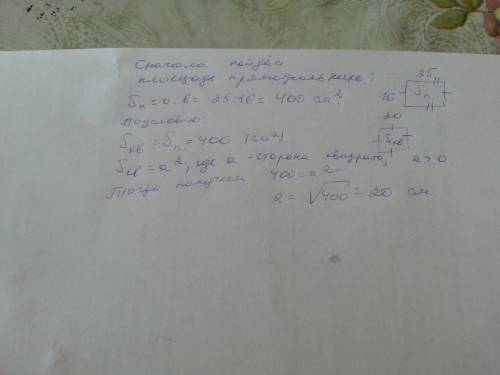 Сначала найдём
площадь прямоугольника:
Sп = a · в = 25 · 16 = 400 см².
По условию:
Sкв = Sп = 400 (см²).
Sкв = a², где a - сторона квадрата, a > 0.
Тогда получим 400 = a²
a = √400 = 20 см
25
16 Sп
20
Sкв